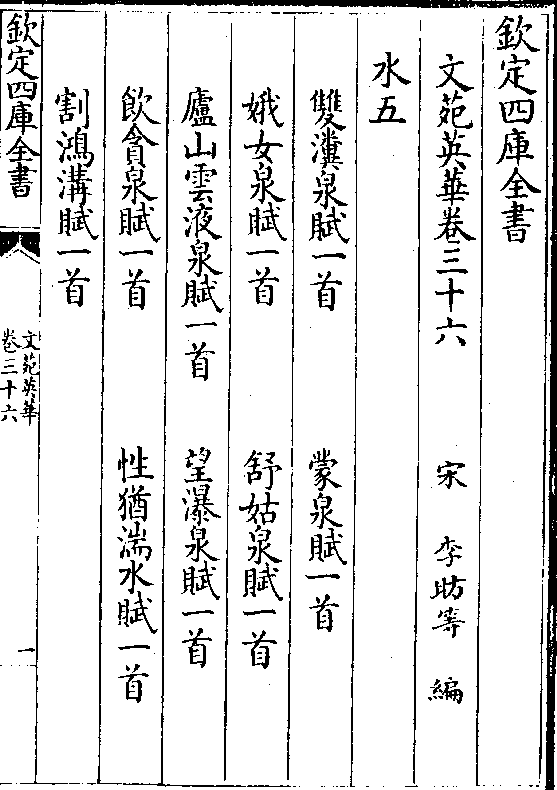 欽定四庫全書
文苑英華卷三十六 宋 李昉等 編
水五
雙瀵泉賦一首 蒙泉賦一首
娥女泉賦一首 舒姑泉賦一首
廬山雲液泉賦一首 望瀑泉賦一首
飲貪泉賦一首 性猶湍水賦一首
割鴻溝賦一首
欽定四庫全書
文苑英華
卷三十六
一